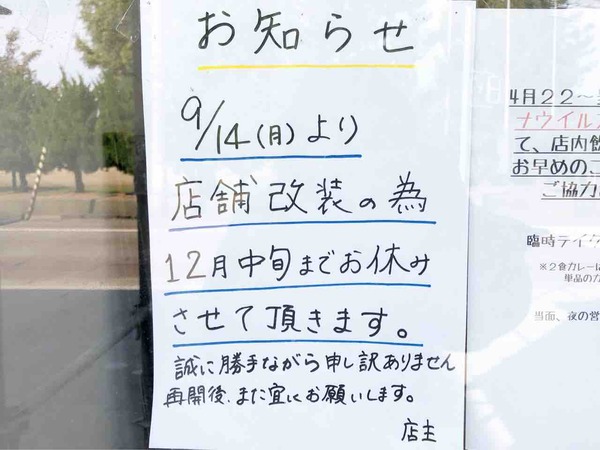 お知らせ
9/14(月)より
店舗改装の為
12月中旬までお休み
させて頂きます。
誠に勝手ながら申し訳ありません
再開後、また宜しくお願いします。
店主
4月22～
ナウイルス
て、店内飲
お早めのご
ご協力
臨時テイク
※2食カレーは
単品のカ
当面、夜の営